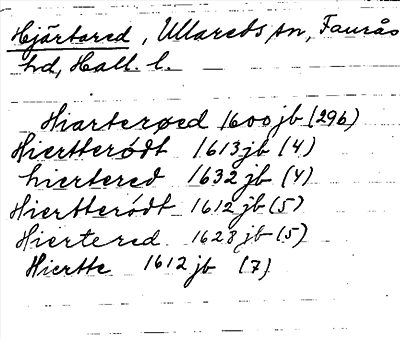 Hjärtared, Ullareds sn, Faurås
hd, Hall. l.
Hiarterøed 1600 jb (296)
Hiertterödt 1613 jb (4)
hiertered 1632 jb (4)
Hiertterödt 1612 jb (5)
Hiertered 1628 jb (5)
Hiertte 1612 jb (7)